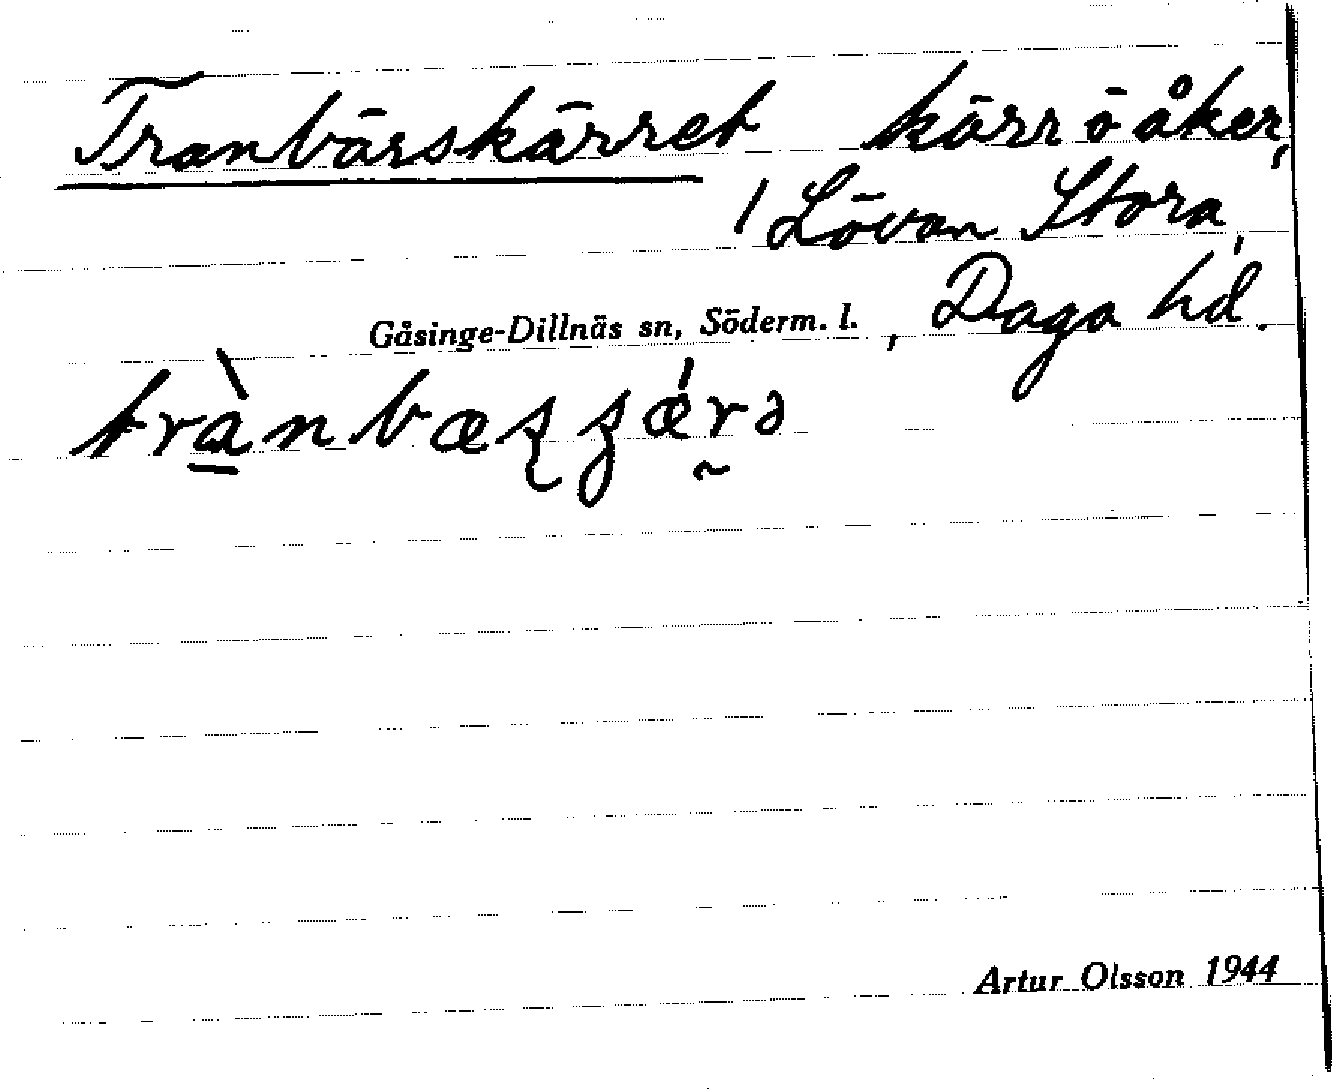 Tranbärskärret kärr o åker,
/ Lövan Stora,
Gåsinge-Dillnäs sn, Söderm. l., Daga hd.
Artur Olsson 1944